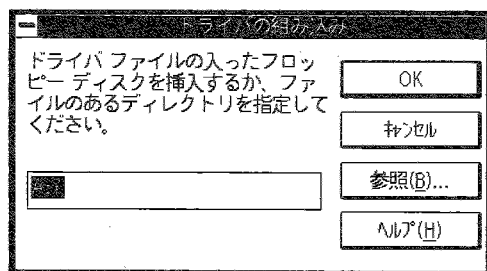 ドライバの組み込み
ドライバ ファイルの入ったフロッ
ピー ディスクを挿入するか、ファ
イルのあるディレクトリを指定して
ください。
OK
ｷｬﾝｾﾙ
参照(B)...
ﾍﾙﾌﾟ(H)